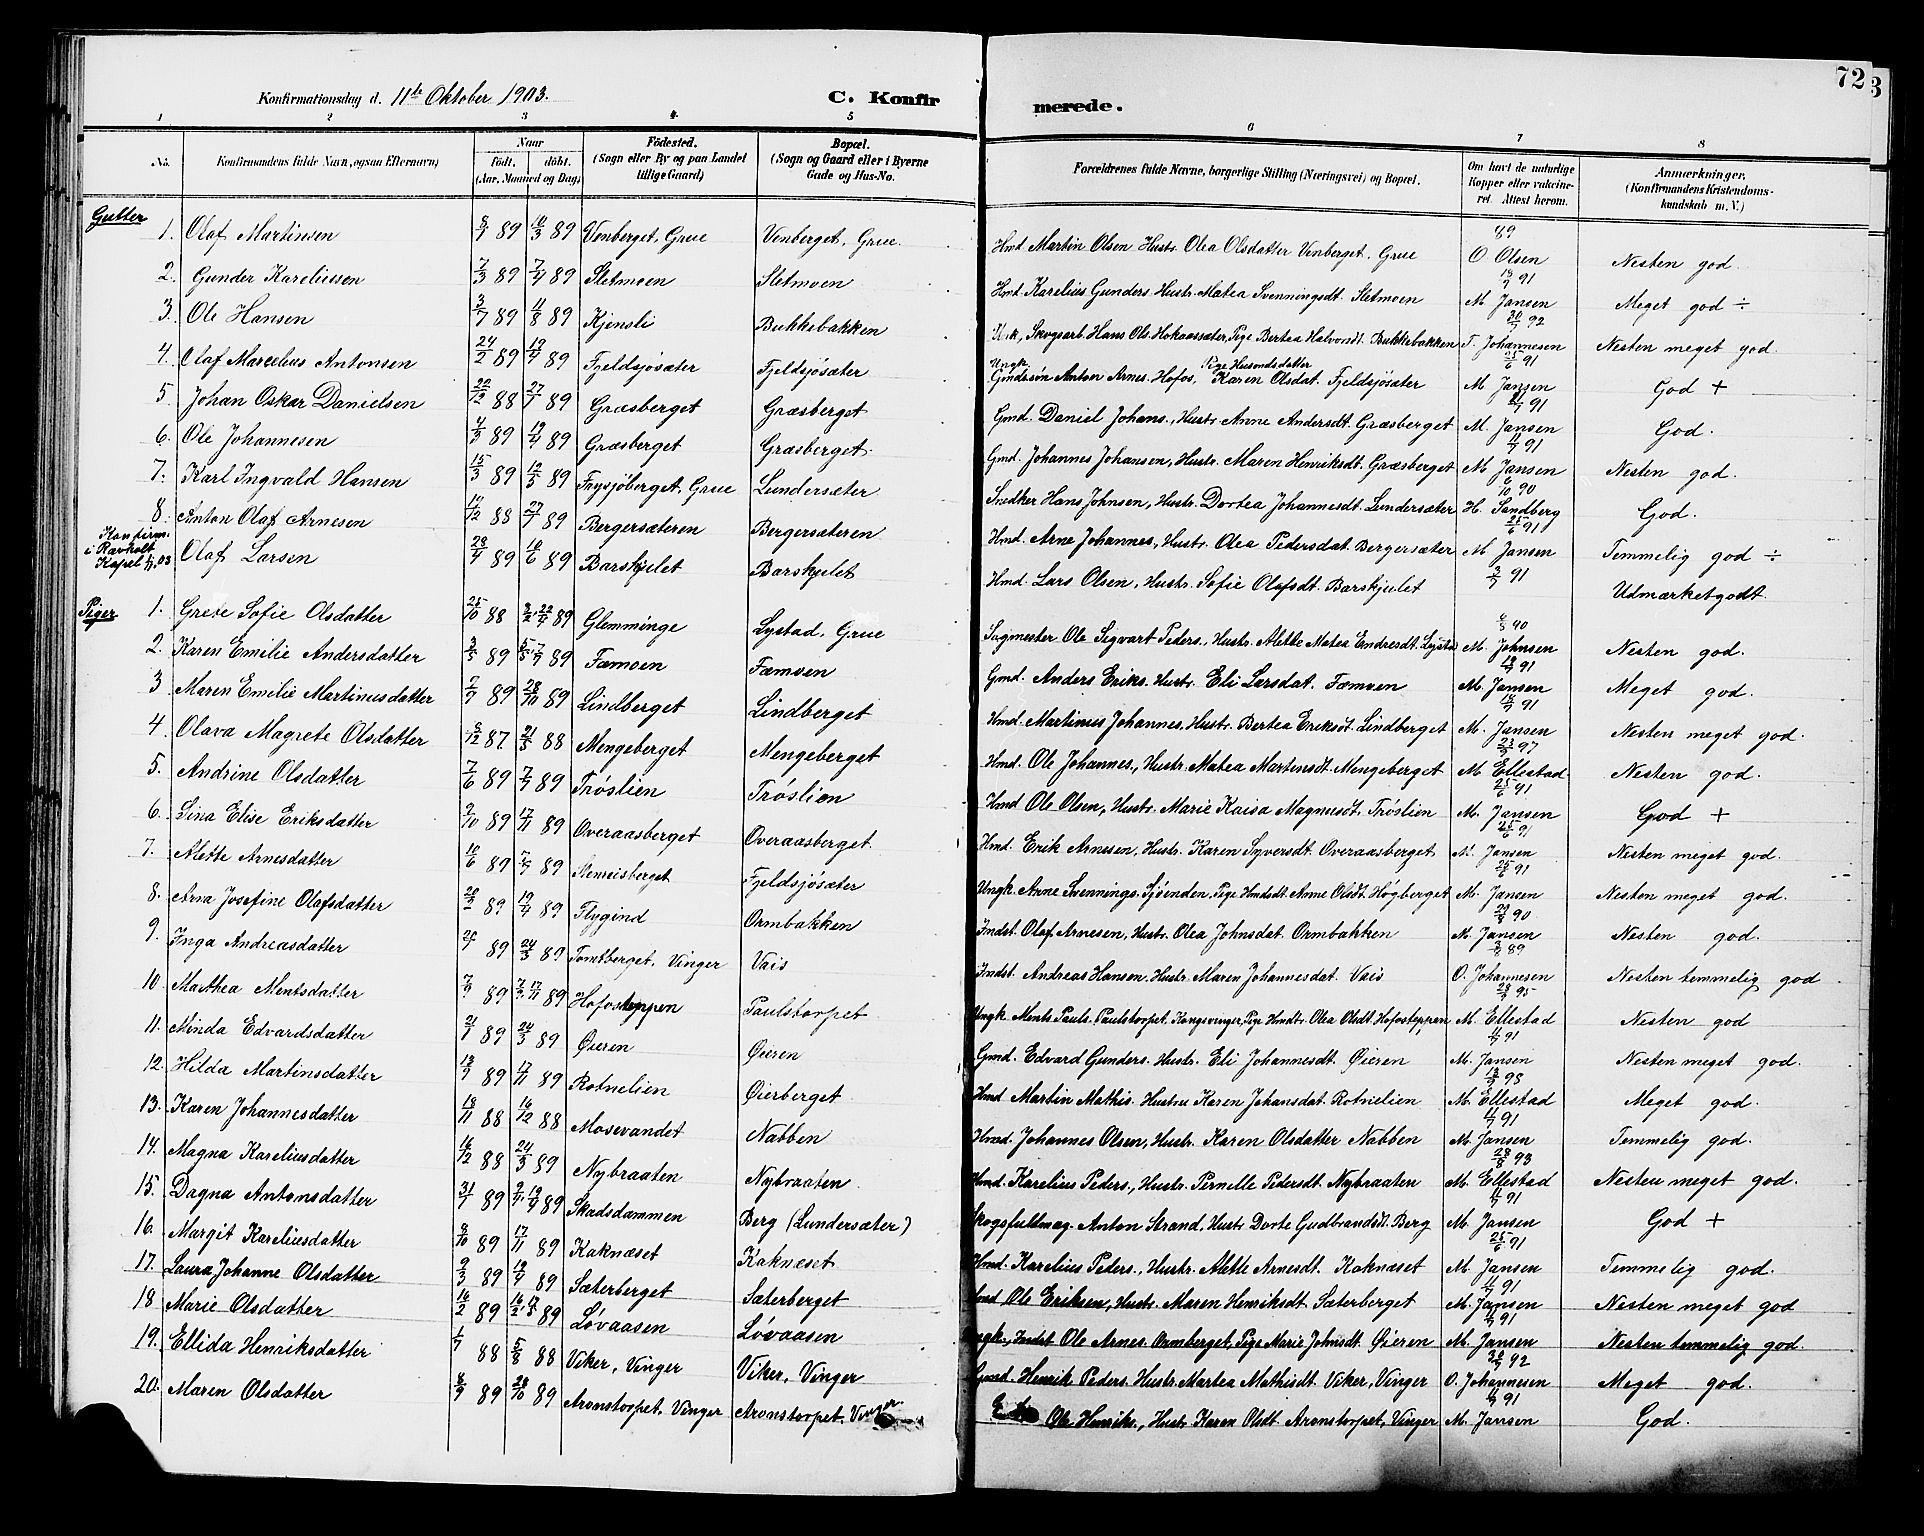 72
3
Konfirmationsdag d. 11te Oktober 1903.
C. Konfirmerede.
1 2 3 4 5 6 7 8
No. Konfirmandens fulde Navn, ogsaa Efternavn) Naar født. døbt. (Aar, Maaned og Dag) Fødested. (Sogn eller By og paa Landet tillige Gaard) Bopæl. (Sogn og Gaard eller i Byerne Gade og Hus-No. Forældrenes fulde Navne, borgerlige Stilling (Næringsvei) og Bopæl. Om havt de naturlige Kopper eller vakcineret. Attest herom. Anmærkninger, (Konfirmandens Kristendomskundskab m. V.)
Gutter
1. Olaf Martinsen 8/1 89 10/3 89 Venberget, Grue Venberget, Grue. Hmd Martin Olsen Hustr. Olea Olsdatter Venberget, Grue 89 O Olsen Nesten god.
2. Gunder Kareliussen 7/3 89 7/4 89 Sletmoen Sletmoen Hmd. Karelius Gunders. Hustr. Matea Svenningsdt. Sletmoen 13/7 91 M. Jansen Meget god ÷
3. Ole Hansen 3/7 89 4/8 89 Kjensli Bukkebakken Ungk, Skogsarb. Hans Ols. Hokaassæter, Pige Bertea Halvorsdt. Bukkebakken 20/7 92 T. Johannesen Nesten meget god.
4. Olaf Marcelius Antonsen 24/2 89 19/4 89 Fjeldsjøsæter Fjeldsjøsæter Ungk. Gmdssøn Anton Arnes. Hofos, Pige Husmdsdatter Karen Olsdat. Fjeldsjøsæter 25/6 91 M. Jansen God +
5. Johan Oskar Danielsen 22/12 88 27/1 89 Græsberget Græsberget Gmd. Daniel Johans., Hustr. Anne Andersdt. Græsberget 21/7 91 M. Jansen God.
6. Ole Johannesen 4/3 89 19/4 89 Græsberget Græsberget. Gmd. Johannes Johansen, Hustr. Maren Henriksdt. Græsberget 11/7 91 M. Jansen Nesten god.
7. Karl Ingvald Hansen 15/3 89 12/5 89 Frysjøberget, Grue Lundersæter Snedker Hans Johnsen, Hustr. Dortea Johannesdt. Lundersæter 6/10 90 H. Sandberg God.
8. Anton Olaf Arnesen 10/12 88 27/1 89 Bergersæteren Bergersæteren Hmd. Arne Johannes., Hustr. Olea Pedersdat. Bergersæter 25/6 91 M. Jansen Temmelig god ÷
Konfirm. i Ravholt Kapel 03 Olaf Larsen 28/4 89 10/6 89 Barskjulet Barskjulet Hmd. Lars Olsen, Hustr. Sofie Olafsdt. Barskjulet 3/7 91 Udmærketgodt.
Piger
1. Grete Sofie Olsdatter 25/10 88 89 Glemminge Lystad, Grue Sagmester Ole Sigvart Peders., Hustr. Alette Matea Endresdt. Lystad 6/5 90 M. Johnsen Nesten god.
2. Karen Emilie Andersdatter 3/5 89 5/5, 7/7 89 Fæmoen Fæmoen Gmd. Anders Eriks. Hustr. Eli Larsdat. Fæmoen 13/7 91 M. Jansen Meget god.
3 Maren Emilie Martinusdatter 7/7 89 28/10 89 Lindberget Lindberget Hmd. Martinus Johannes, Hustr. Bertea Eriksdt. Lindberget 13/7 91 M. Jansen Nesten meget god.
4. Olava Magrete Olsdatter 8/12 87 21/5 88 Mengeberget Mengeberget Hmd. Ole Johannes., Hustr. Matea Martinsdt. Mengeberget 97 M. Ellestad Nesten god.
5. Andrine Olsdatter 7/6 89 7/7 89 Trøslien Trøslien Hmd Ole Olsen, Hustr. Marie Kaisa Magnusdt. Trøslien 25/6 91 M. Jansen God +
6. Lina Elise Eriksdatter 2/10 89 17/11 89 Overaasberget Overaasberget Hmd. Erik Arnesen, Hustr. Karen Syversdt. Overaasberget 25/6 91 M. Jansen Nesten meget god.
7. Alette Arnesdatter 10/6 89 7/7 89 Stenreisberget Fjeldsjøsæter Ungk. Arne Svennings. Sjøenden, Pige Hmdsdt. Anne Olsdt. Høgberget 25/6 91 M. Jansen Nesten meget god.
8. Arna Josefine Olafsdatter 89 19/4 89 Flygind Ormbakken Indst. Olaf Arnesen, Hustr. Olea Johnsdat. Ormbakken 90 M. Jansen Nesten god.
9. Inga Andreasdatter 89 24/3 89 Tomtberget, Vinger Vais Indst. Andreas Hansen, Hustr. Maren Johannesdat. Vais 89 O. Johannesen Nesten temmelig god
10. Marthea Mentsdatter 7/9 89 89 Hofosteppen Paulstorpet Ungk. Ments Pauls. Paulstorpet, Kongsvinger, Pige Hmdtr. Olea Olsdt. Hofosteppen 95 M. Ellestad Nesten god
11. Minda Edvardsdatter 21/1 89 24/3 89 Øieren Øieren Gmd. Edvard Gunders. Hustr. Eli Johannesdt. Øieren 11/7 91 M. Jansen Nesten meget god.
12. Hilda Martinsdatter 13/9 89 17/11 89 Rotnelien Øierberget. Hmd Martin Mathis. Hustru Karen Johansdat. Rotnelien 98 M. Ellestad Meget god.
13. Karen Johannesdatter 18/11 88 16/12 88 Mosevandet Nabben Hmd. Johannes Olsen, Hustr. Karen Olsdatter Nabben 4/7 91 M. Jansen Temmelig god.
14. Magna Kareliusdatter 16/12 88 24/3 89 Nybraaten Nybraaten Hmd. Karelius Peders., Hustr. Pernelle Pedersdt. Nybraaten 28/8 93 M. Ellestad Nesten meget god.
15. Dagna Antonsdatter 31/7 89 89 Skadsdammen Berg (Lundersæter) Skogsfuldmæg. Anton Strand, Hustr. Dorte Gudbrandsdt. Berg 11/7 91 M. Jansen God +
16. Margit Kareliusdatter 8/10 89 17/11 89 Kaknæset Kaknæset Hmd. Karelius Peders., Hustr. Alette Arnesdt. Kaknæset 25/6 91 M. Jansen Temmelig god.
17. Laura Johanne Olsdatter 9/3 89 19/4 89 Sæterberget Sæterberget Hmd Ole Eriksen, Hustr. Maren Henriksdt. Sæterberget 4/7 91 M. Jansen Nesten meget god
18 Marie Olsdatter 16/2 89 89 Løvaasen Løvaasen Ungk., Indst Ole Arnes. Ormberget, Pige Marie Johnsdt. Øieren 91 M. Jansen Nesten temmelig god.
19. Ellida Henriksdatter 1/7 88 5/8 88 Viker, Vinger Viker, Vinger Gmd. Henrik Peders. Hustr. Martea Mathisdt. Viker, Vinger 92 O. Johannesen Meget god.
20. Maren Olsdatter 8/9 89 28/10 89 Aronstorpet, Vinger Aronstorpet, Vinger Ole Henriks., Hustr. Karen Olsdt. Aronstorpet, Vinger 91 M. Jansen God.